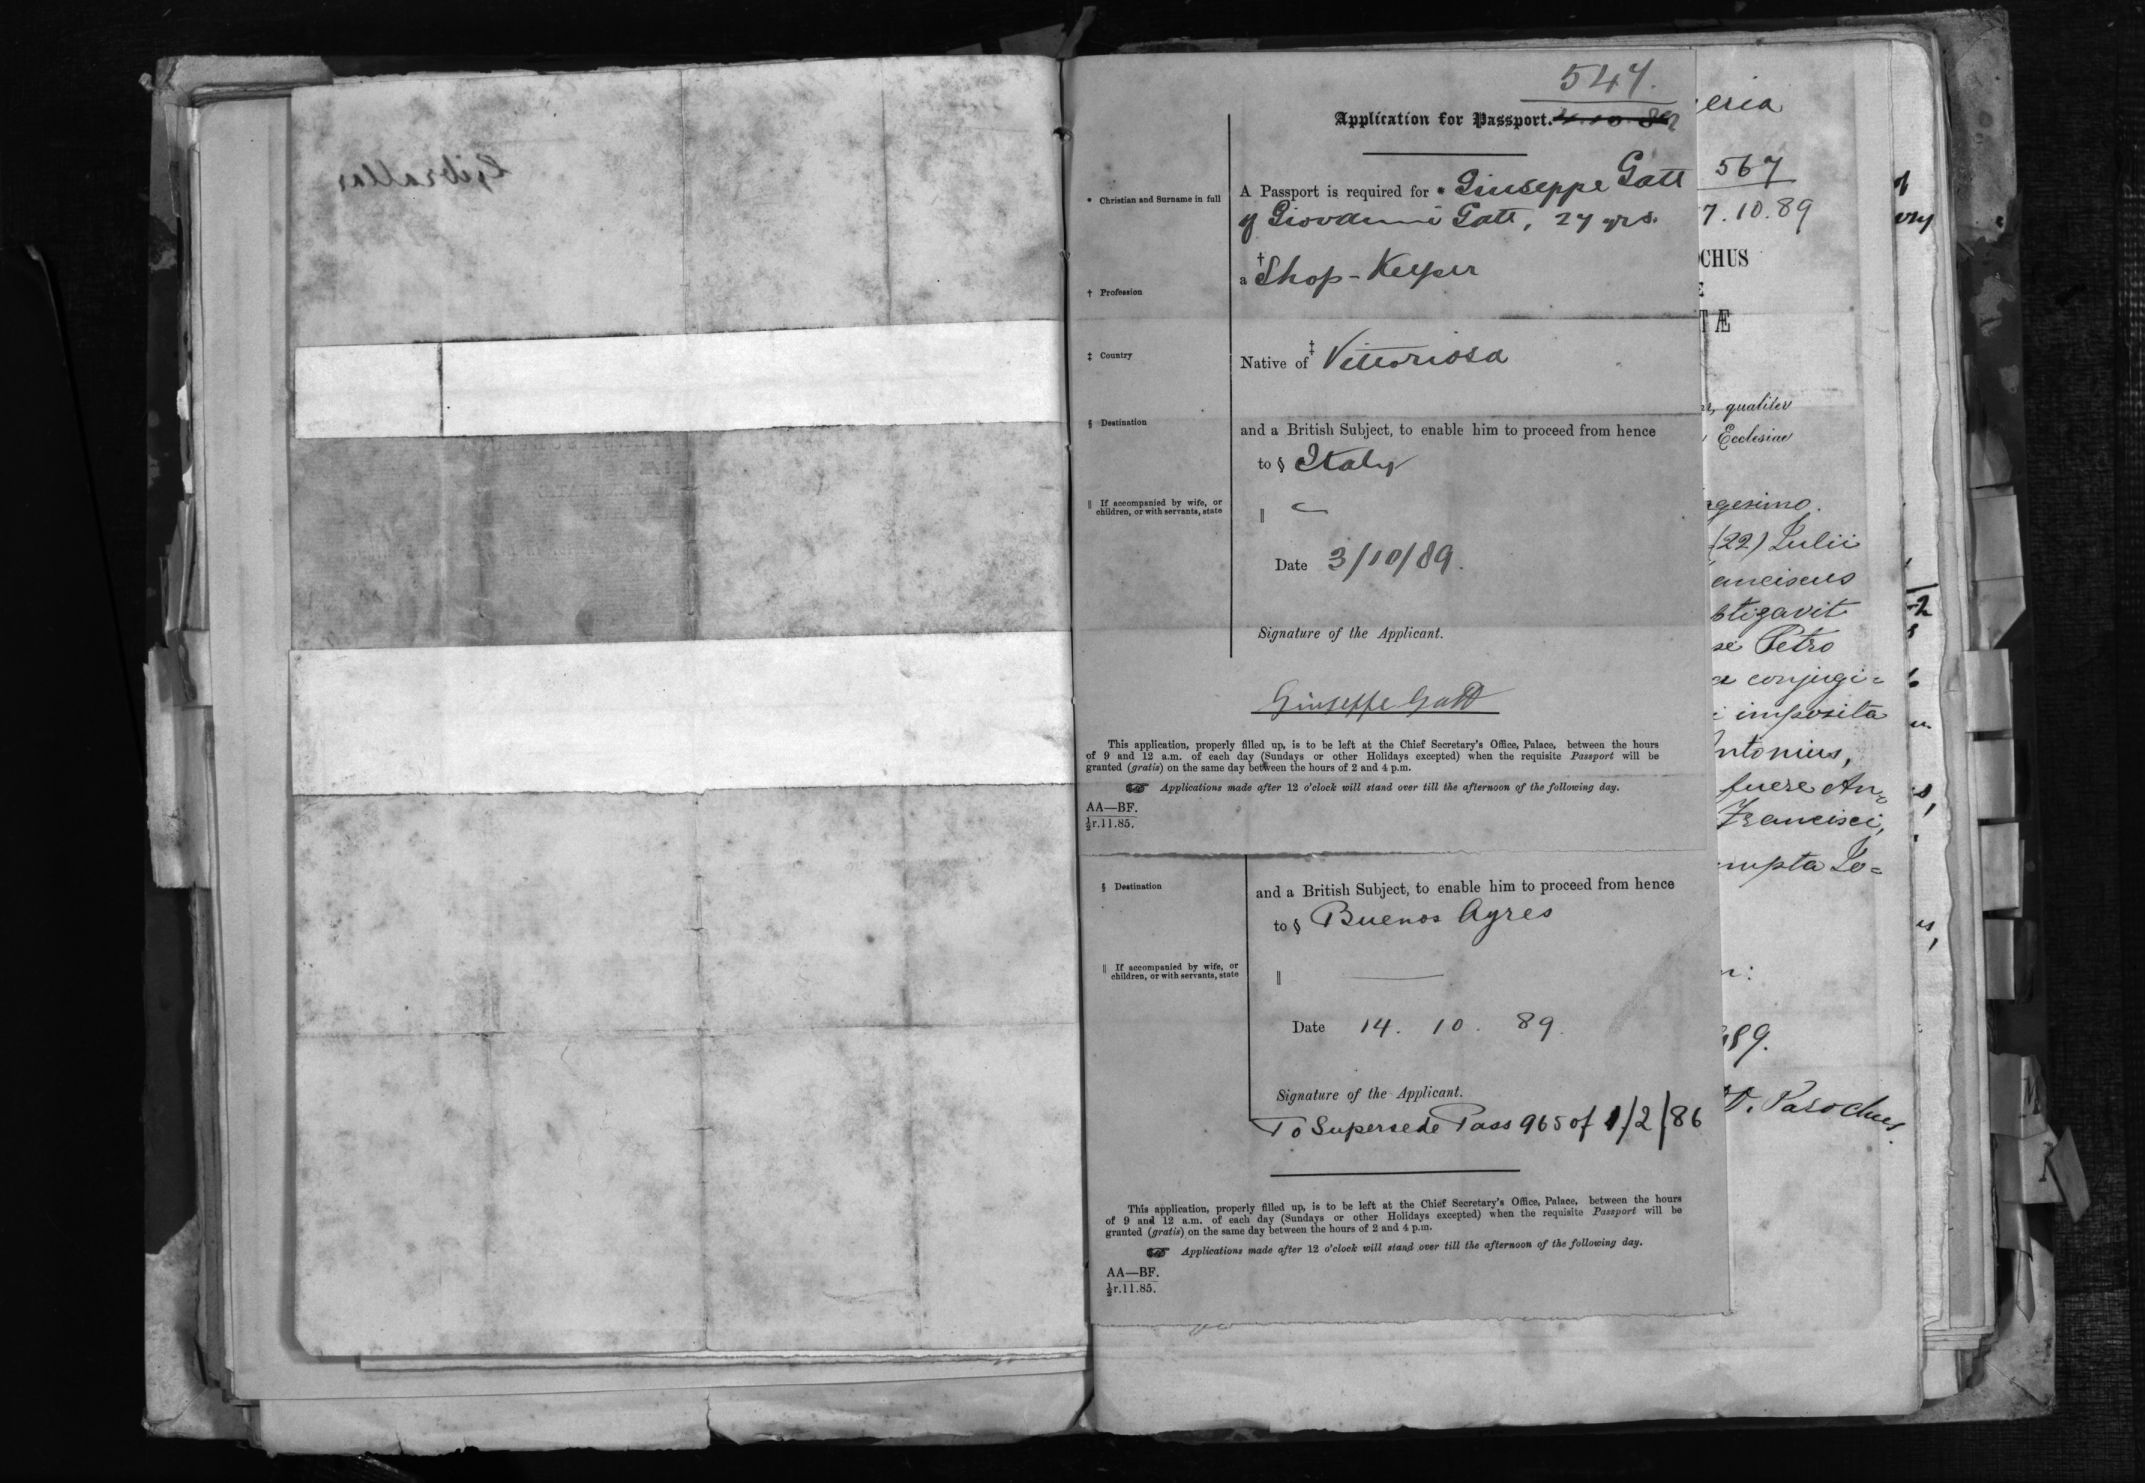 Gibraltar
547.
Application for Passport.
* Christian and Surname in full
A Passport is required for * Giuseppe Gatt
of Giovanni Gatt, 27 yrs.
† Profession
a † Shop-Keeper
‡ Country
Native of ‡ Vittoriosa
§ Destination
and a British Subject, to enable him to proceed from hence
to § Italy
‖ If accompanied by wife, or
children, or with servants, state
‖
Date 3/10/89.
Signature of the Applicant.
Giuseppe Gatt
This application, properly filled up, is to be left at the Chief Secretary's Office, Palace, between the hours
of 9 and 12 a.m. of each day (Sundays or other Holidays excepted) when the requisite Passport will be
granted (gratis) on the same day between the hours of 2 and 4 p.m.
☞ Applications made after 12 o'clock will stand over till the afternoon of the following day.
AA—BF.
½r.11.85.
§ Destination
and a British Subject, to enable him to proceed from hence
to § Buenos Ayres
‖ If accompanied by wife, or
children, or with servants, state
‖ ———
Date 14. 10. 89.
Signature of the Applicant.
To Supersede Pass 965 of 1/2/86
This application, properly filled up, is to be left at the Chief Secretary's Office, Palace, between the hours
of 9 and 12 a.m. of each day (Sundays or other Holidays excepted) when the requisite Passport will be
granted (gratis) on the same day between the hours of 2 and 4 p.m.
☞ Applications made after 12 o'clock will stand over till the afternoon of the following day.
AA—BF.
½r.11.85.
eria
567
7.10.89
OCHUS
E
TÆ
qualiter
Ecclesiae
gesimo.
(22) Julii
anciscus
stigavit
se Petro
a conjugi=
i imposita
Antonius,
fuere An=
Francisci,
nupta Jo=
n:
89.
V. Parochus.